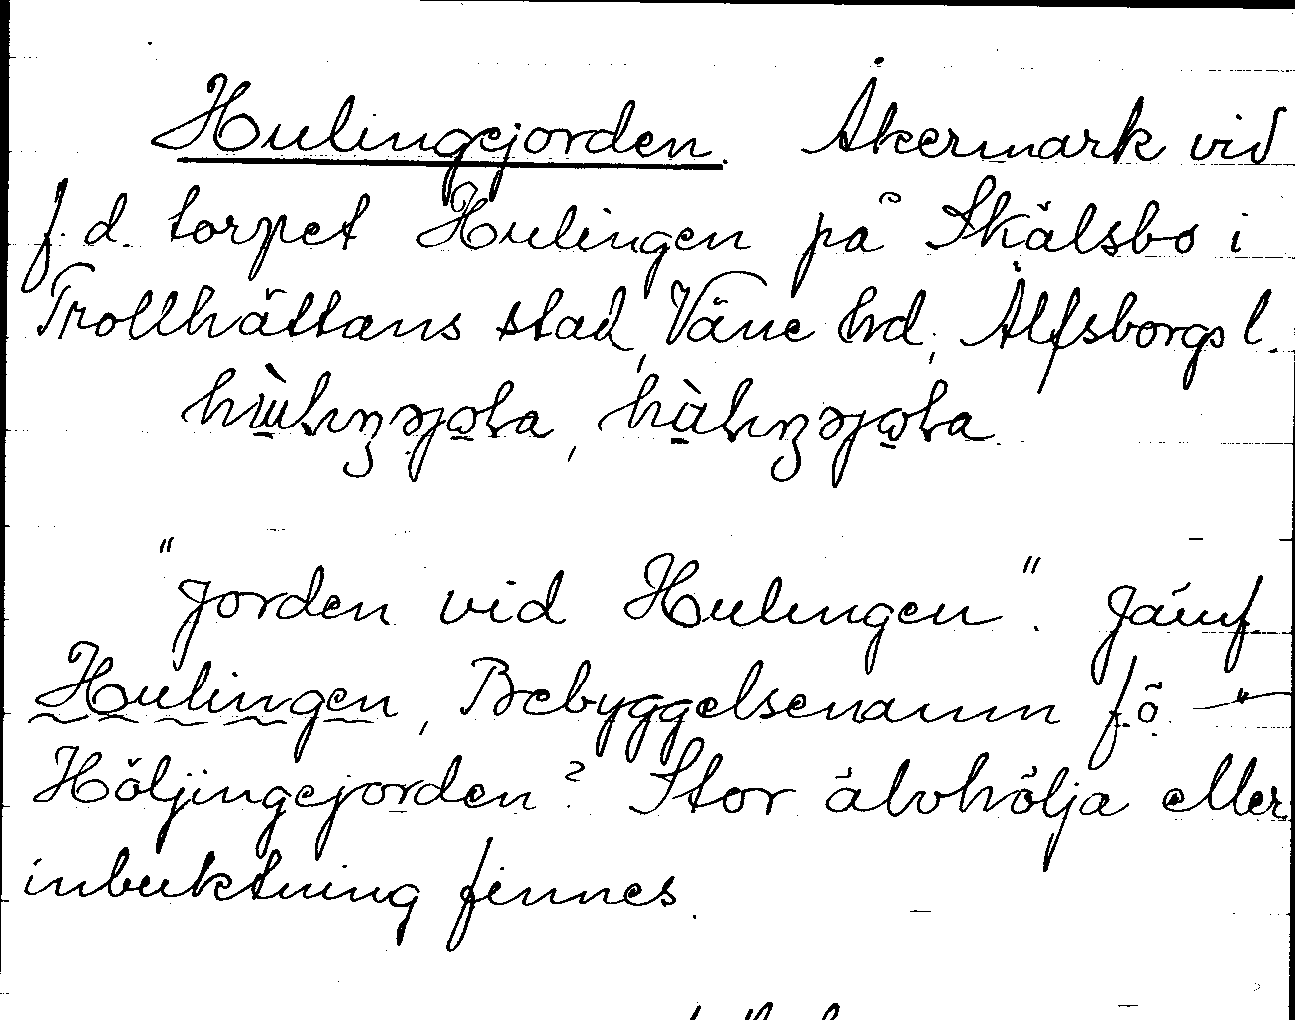 Hulingejorden. Åkermark vid
f.d. torpet Hulingen på Skälsbo i
Trollhättans stad, Väne hd, Älfsborgs l.
"Jorden vid Hulingen". Jämf.
Hulingen, Bebyggelsenamn f.ö. — "
Höljingejorden? Stor älvhölja eller
inbuktning finnes.